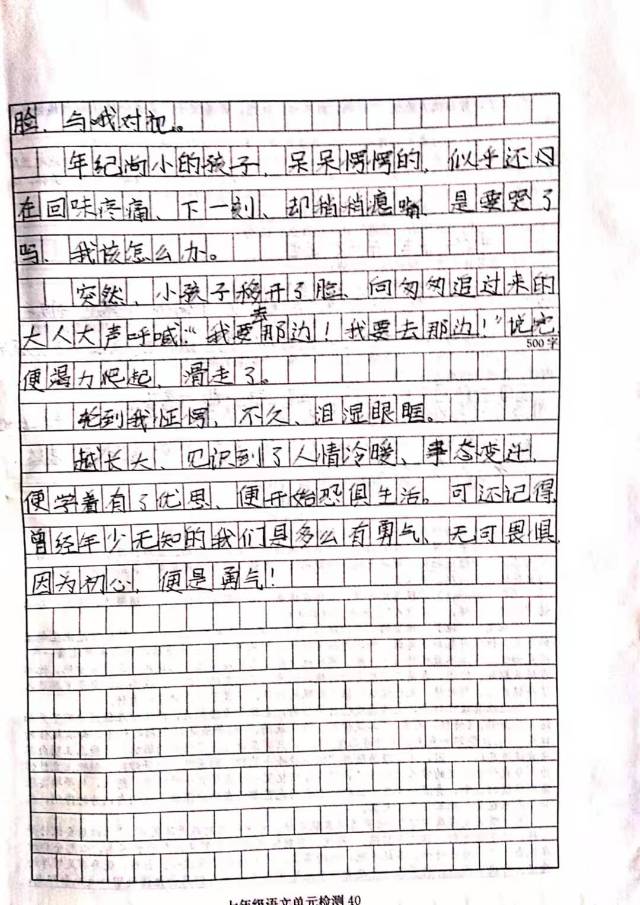 脸，与我对视。
年纪尚小的孩子，呆呆愕愕的，似乎还
在回味疼痛、下一刻、却稍稍瘪嘴，是要哭了
吗，我该怎么办。
突然，小孩子移开了脸、向匆匆追过来的
大人大声呼喊：“我要去那边！我要去那边！”说完
500字
便竭力爬起，滑走了。
轮到我怔愕，不久，泪湿眼眶。
越长大，见识到了人情冷暖、事态变迁，
便学着有了忧思、便开始恐惧生活。可还记得
曾经年少无知的我们是多么有勇气、无可畏惧
因为初心，便是勇气！
七年级语文单元检测40